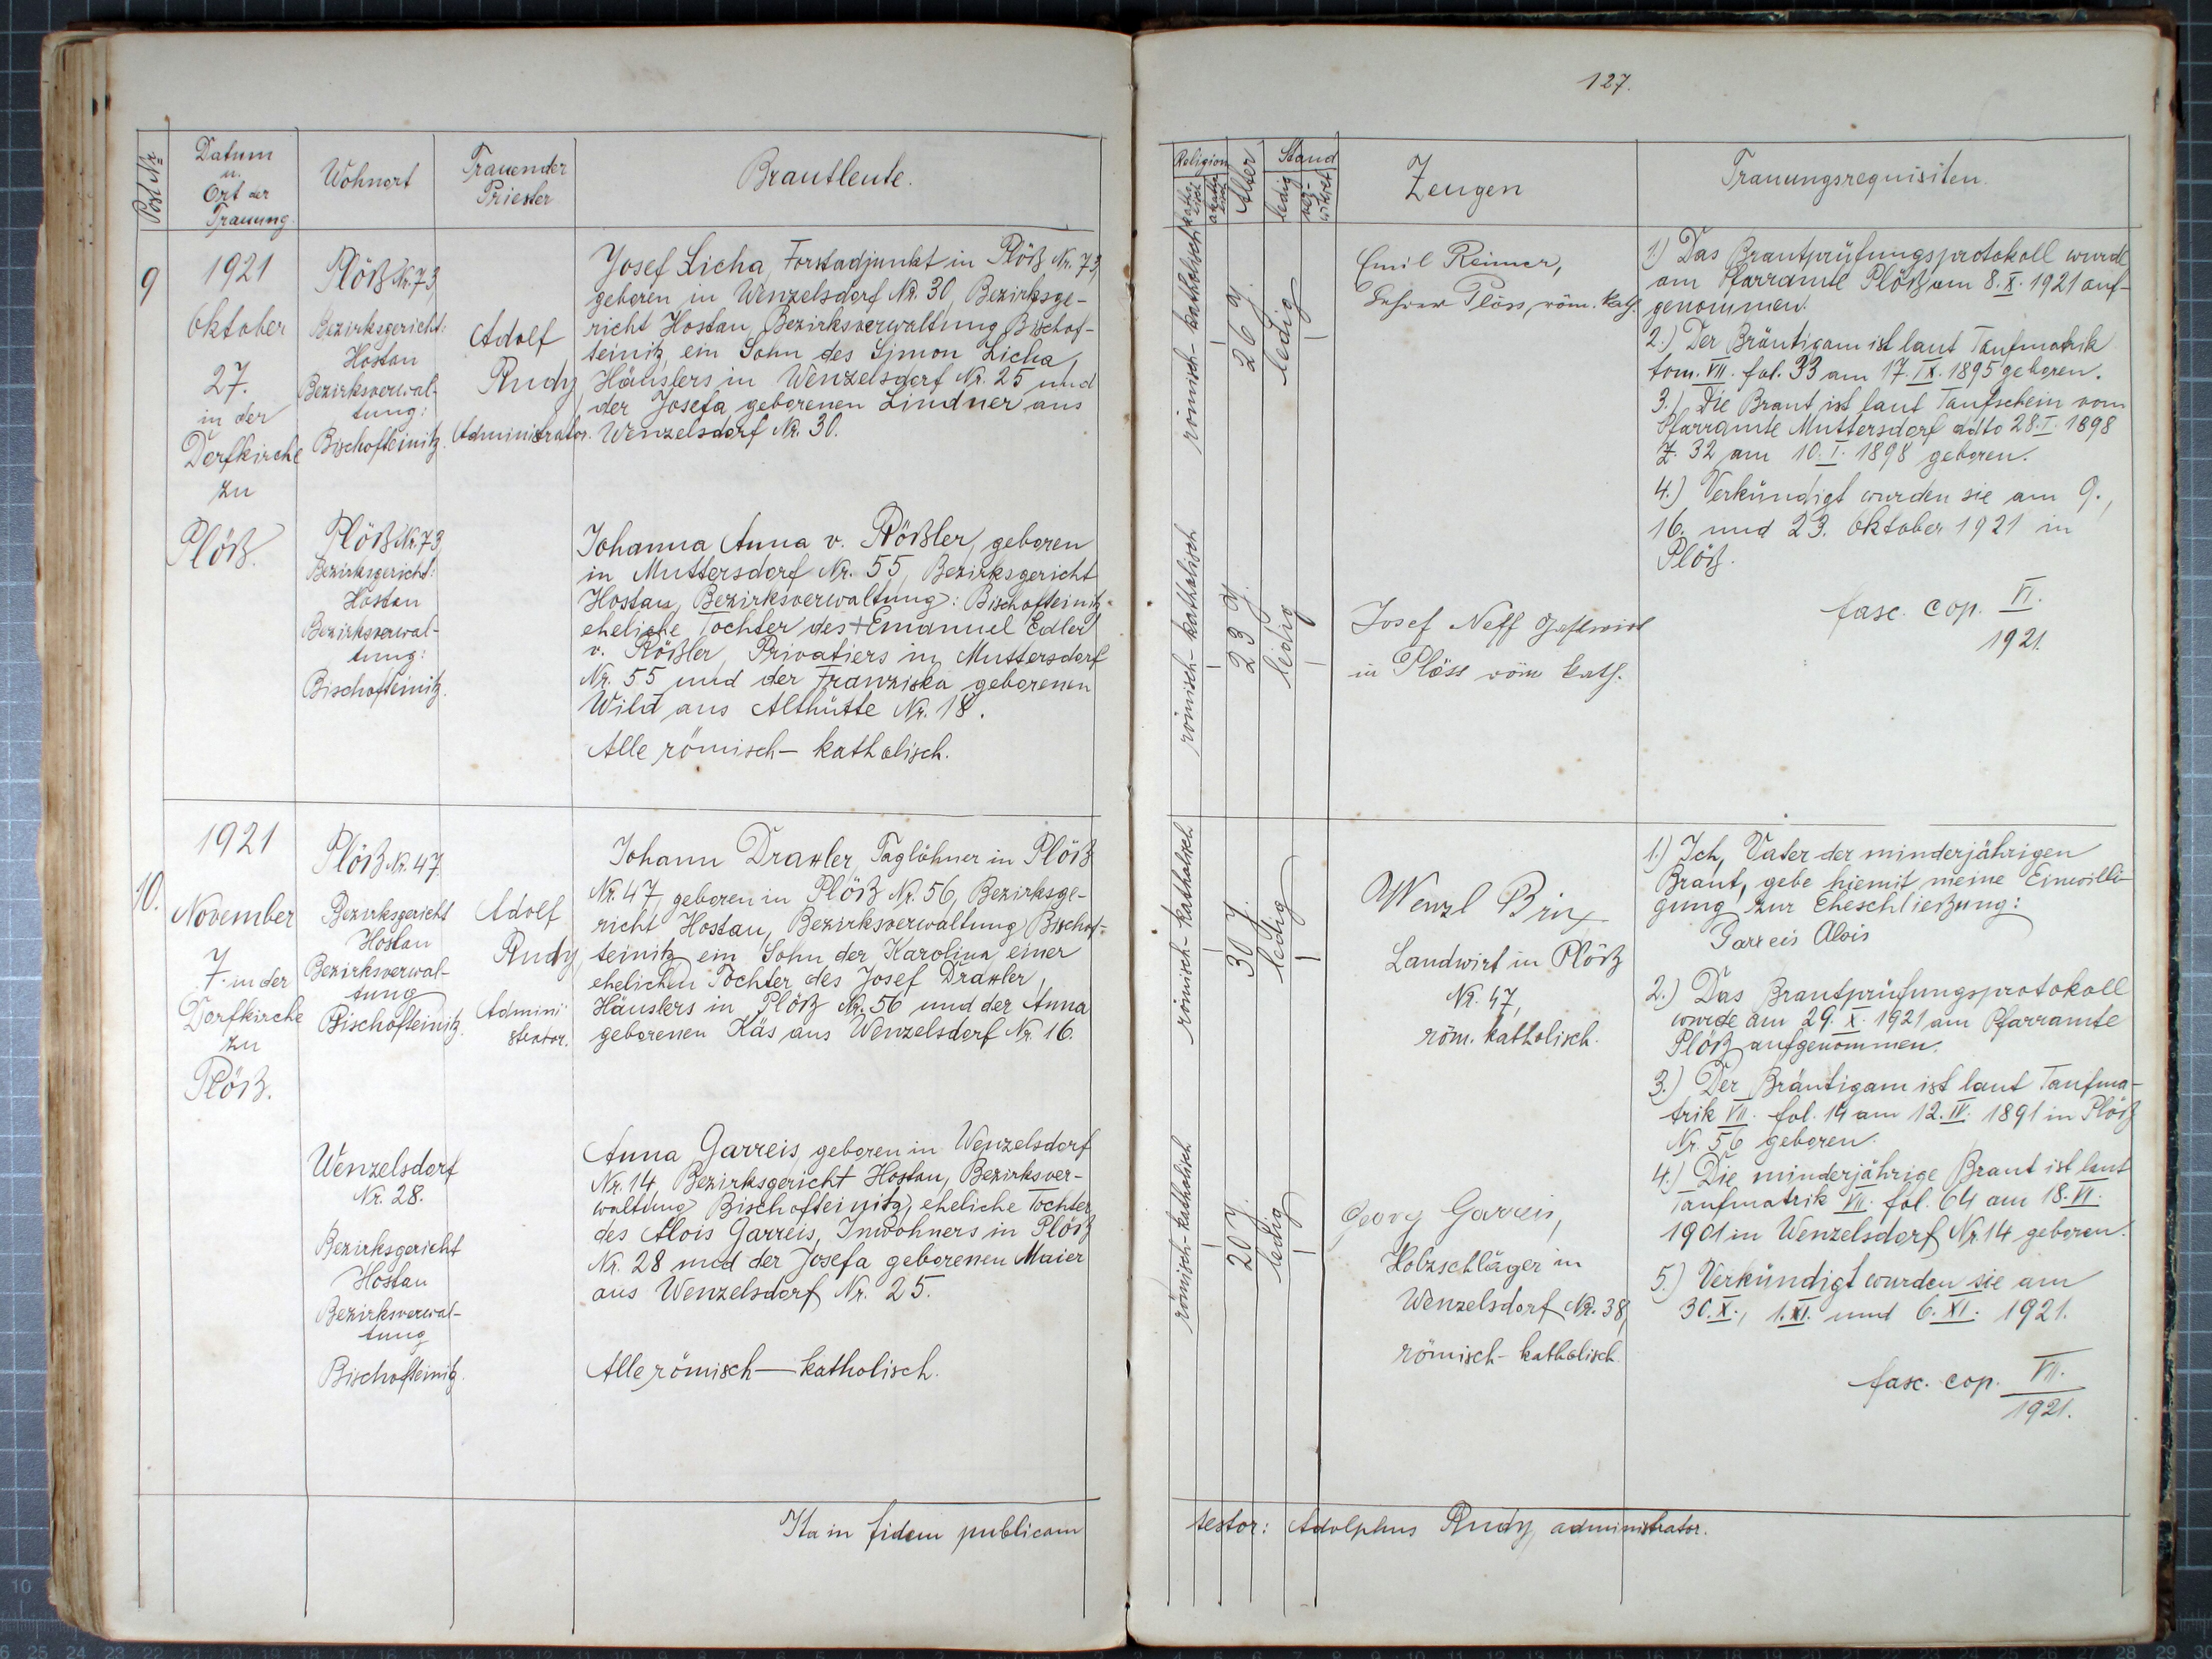 127.
Post Nr.
Datum
u.
Ort der
Trauung.
Wohnort
Trauender
Priester
Brautleute.
9
1921
Oktober
27.
in der
Dorfkirche
zu
Plöß.
Plöß Nr. 73
Bezirksgericht:
Hostau
Bezirksverwal-
tung:
Bischofteinitz.
Adolf
Rudy,
Administrator.
Josef Licha, Forstadjunkt in Plöß Nr. 73,
geboren in Wenzelsdorf Nr. 30, Bezirksge-
richt Hostau, Bezirksverwaltung Bischof-
teinitz, ein Sohn des Simon Licha,
Häuslers in Wenzelsdorf Nr. 25 und
der Josefa geborenen Lindner aus
Wenzelsdorf Nr. 30.
Plöß Nr. 73
Bezirksgericht:
Hostau
Bezirksverwal-
tung:
Bischofteinitz.
Johanna Anna v. Rößler, geboren
in Muttersdorf Nr. 55, Bezirksgericht
Hostau, Bezirksverwaltung: Bischofteinitz-
eheliche Tochter des + Emanuel Edler
v. Rößler, Privatiers in Muttersdorf
Nr. 55 und der Franziska geborenen
Wild aus Althütte Nr. 18.
Alle römisch-katholisch.
10.
1921
November
7. in der
Dorfkirche
zu
Plöß.
Plöß Nr. 47
Bezirksgericht
Hostau
Bezirksverwal-
tung
Bischofteinitz.
Adolf
Rudy,
Admini
strator.
Johann Draxler, Taglöhner in Plöß
Nr. 47, geboren in Plöß Nr. 56, Bezirksge-
richt Hostau, Bezirksverwaltung Bischof-
teinitz ein Sohn der Karolina einer
ehelichen Tochter des Josef Draxler,
Häuslers in Plöß Nr. 56 und der Anna
geborenen Käs aus Wenzelsdorf Nr. 16.
Wenzelsdorf
Nr. 28.
Bezirksgericht
Hostau
Bezirksverwal-
tung
Bischofteinitz.
Anna Garreis, geboren in Wenzelsdorf
Nr. 14 Bezirksgericht Hostau, Bezirksver-
waltung Bischofteinitz, eheliche Tochter
des Alois Garreis, Inwohners in Plöß
Nr. 28 und der Josefa geborenen Maier
aus Wenzelsdorf Nr. 25.
Alle römisch-katholisch.
Ita in fidem publicam
Religion
katho-
lisch
akatho-
lisch
Alter
Stand
ledig
ver-
witwet
Zeugen
Trauungsrequisiten.
römisch-katholisch
26 J.
ledig
Emil Reimer,
Lehrer Plöss, röm. kath.
römisch-katholisch
23 J.
ledig
Josef Neff Gastwirt
in Plöss röm kath.
1.) Das Brautprüfungsprotokoll wurde
am Pfarramte Plöß am 8. X. 1921 auf-
genommen.
2.) Der Bräutigam ist laut Taufmatrik
tom. VII. fol. 33 am 17. IX. 1895 geboren.
3.) Die Braut ist laut Taufschein vom
Pfarramte Muttersdorf ddto 28. I. 1898
Z. 32 am 10. I. 1898 geboren.
4.) Verkündigt wurden sie am 9.,
16. und 23. Oktober 1921 in
Plöß.
fasc. cop. VI.
1921.
römisch-katholisch
30 J.
ledig
Wenzl Brix
Landwirt in Plöß
Nr. 47,
röm. katholisch.
römisch-katholisch
20 J.
ledig
Georg Garreis,
Holzschläger in
Wenzelsdorf Nr. 38,
römisch-katholisch
1.) Ich, Vater der minderjährigen
Braut, gebe hiemit meine Einwilli-
gung zur Eheschließung:
Garreis Alois
2.) Das Brautprüfungsprotokoll
wurde am 29. X. 1921 am Pfarramte
Plöß aufgenommen.
3.) Der Bräutigam ist laut Taufma-
trik VII. fol. 14 am 12. IV. 1891 in Plöß
Nr. 56 geboren.
4.) Die minderjährige Braut ist laut
Taufmatrik VII. fol. 64 am 18. VI.
1901 in Wenzelsdorf Nr. 14 geboren.
5.) Verkündigt wurden sie am
30. X., 1. XI. und 6. XI. 1921.
fasc. cop. VII.
1921.
testor: Adolphus Rudy, administrator.